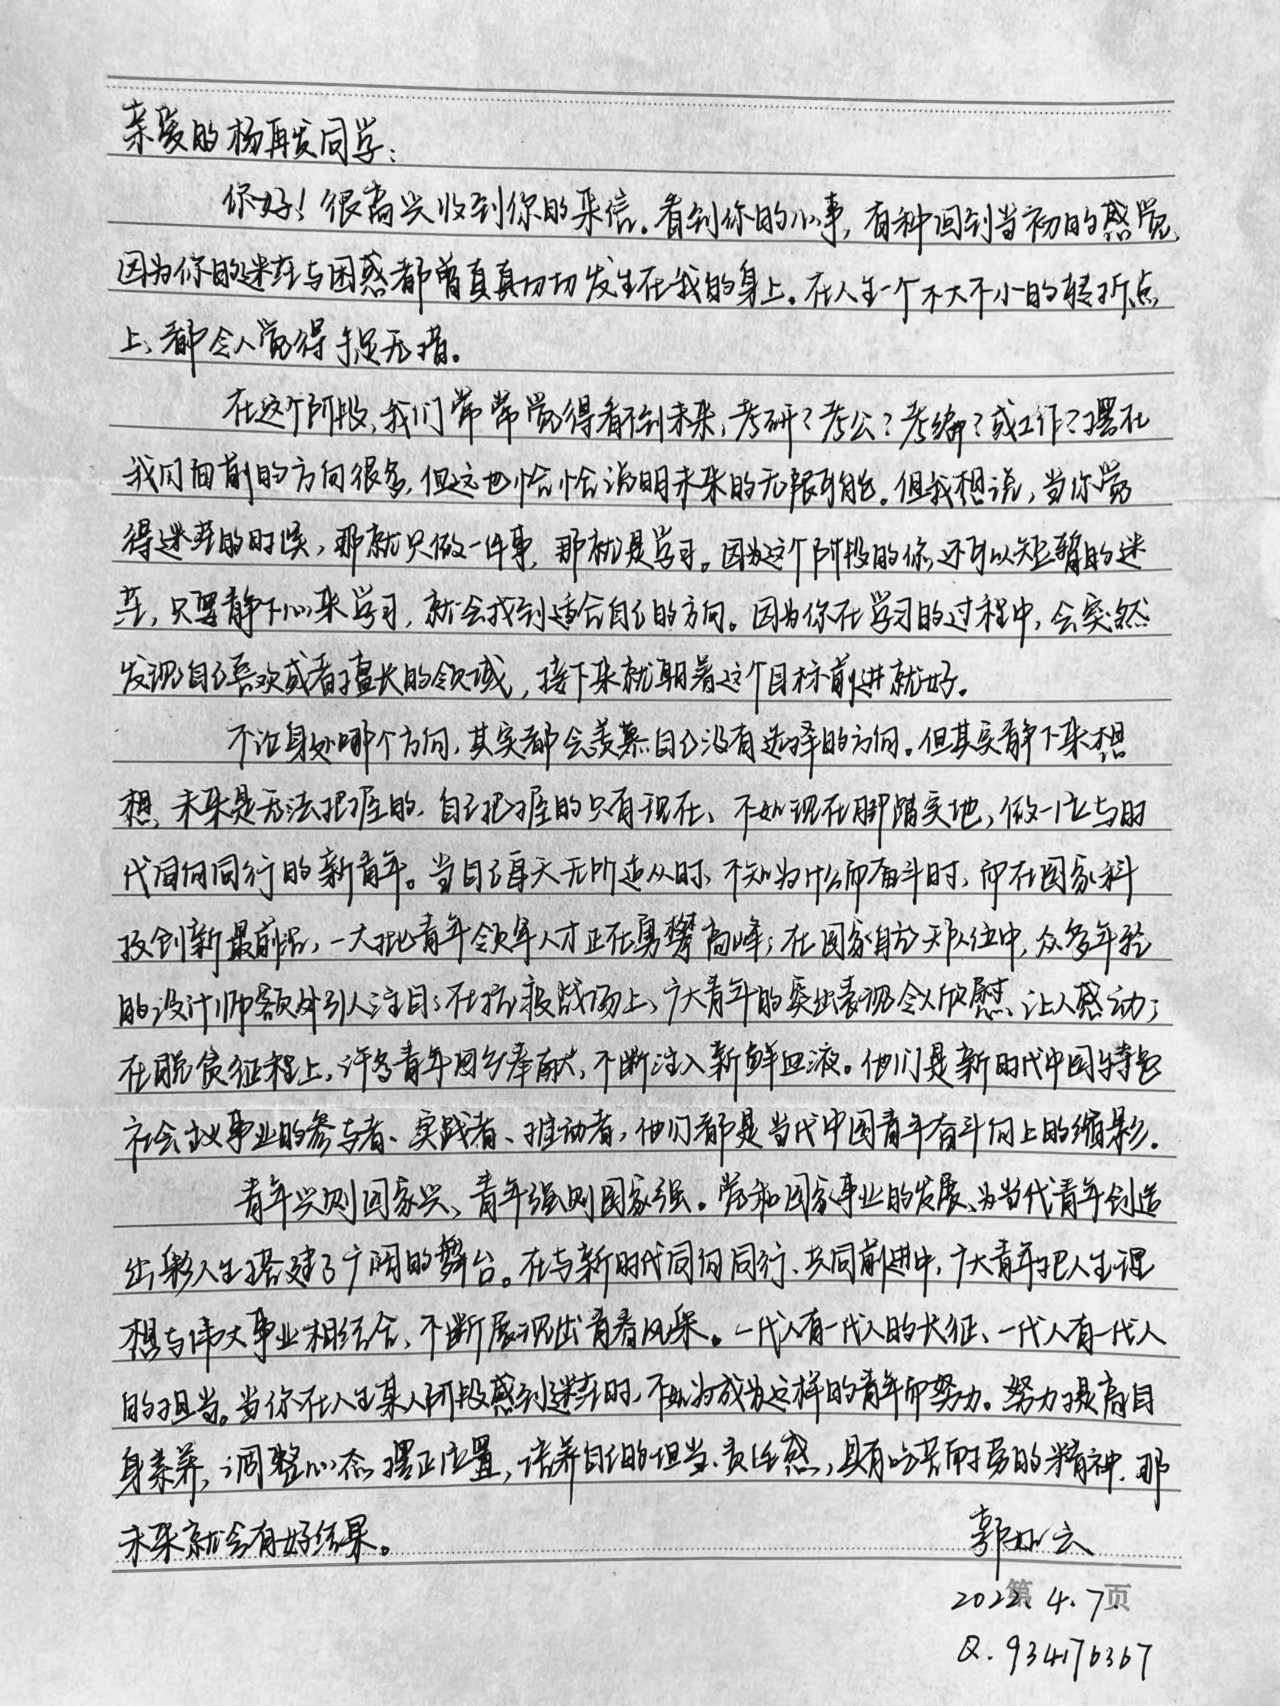 亲爱的杨再发同学：
你好！很高兴收到你的来信。看到你的心事，有种回到当初的感觉，
因为你的迷茫与困惑都曾真真切切发生在我的身上。在人生一个不大不小的转折点
上、都令人觉得手足无措。
在这个阶段，我们常常觉得看不到未来，考研？考公？考编？或工作？摆在
我们面前的方向很多，但这也恰恰说明未来的无限可能。但我想说，当你觉
得迷茫的时候，那就只做一件事，那就是学习。因为这个阶段的你，还可以短暂的迷
茫，只要静下心来学习，就会找到适合自己的方向。因为你在学习的过程中，会突然
发现自己喜欢或者擅长的领域，接下来就朝着这个目标前进就好。
不论身处哪个方向，其实都会羡慕自己没有选择的方向。但其实静下来想
想，未来是无法把握的，自己把握的只有现在、不如现在脚踏实地，做一位与时
代同向同行的新青年。当自己每天无所适从时、不知为什么而奋斗时，而在国家科
技创新最前沿，一大批青年领军人才正在勇攀高峰；在国家自主天队伍中，众多年轻
的设计师额外引人注目；在抗疫战场上，广大青年的突出表现令人欣慰、让人感动；
在脱贫征程上，许多青年因公奉献，不断注入新鲜血液。他们是新时代中国特色
社会主义事业的参与者、实践者、推动者，他们都是当代中国青年奋斗向上的缩影。
青年兴则国家兴、青年强则国家强。党和国家事业的发展、为当代青年创造
出彩人生搭建了广阔的舞台。在与新时代同向同行、共同前进中，广大青年把人生理
想与伟大事业相结合，不断展现出青春风采。一代人有一代人的长征、一代人有一代人
的担当。当你在人生某个阶段感到迷茫时，不如为成为这样的青年而努力。努力提高自
身素养，调整心态，摆正位置，培养自己的担当、责任感，具有吃苦耐劳的精神，那
未来就会有好结果。
郭如云
第 页
2022.4.7.
Q.934176367